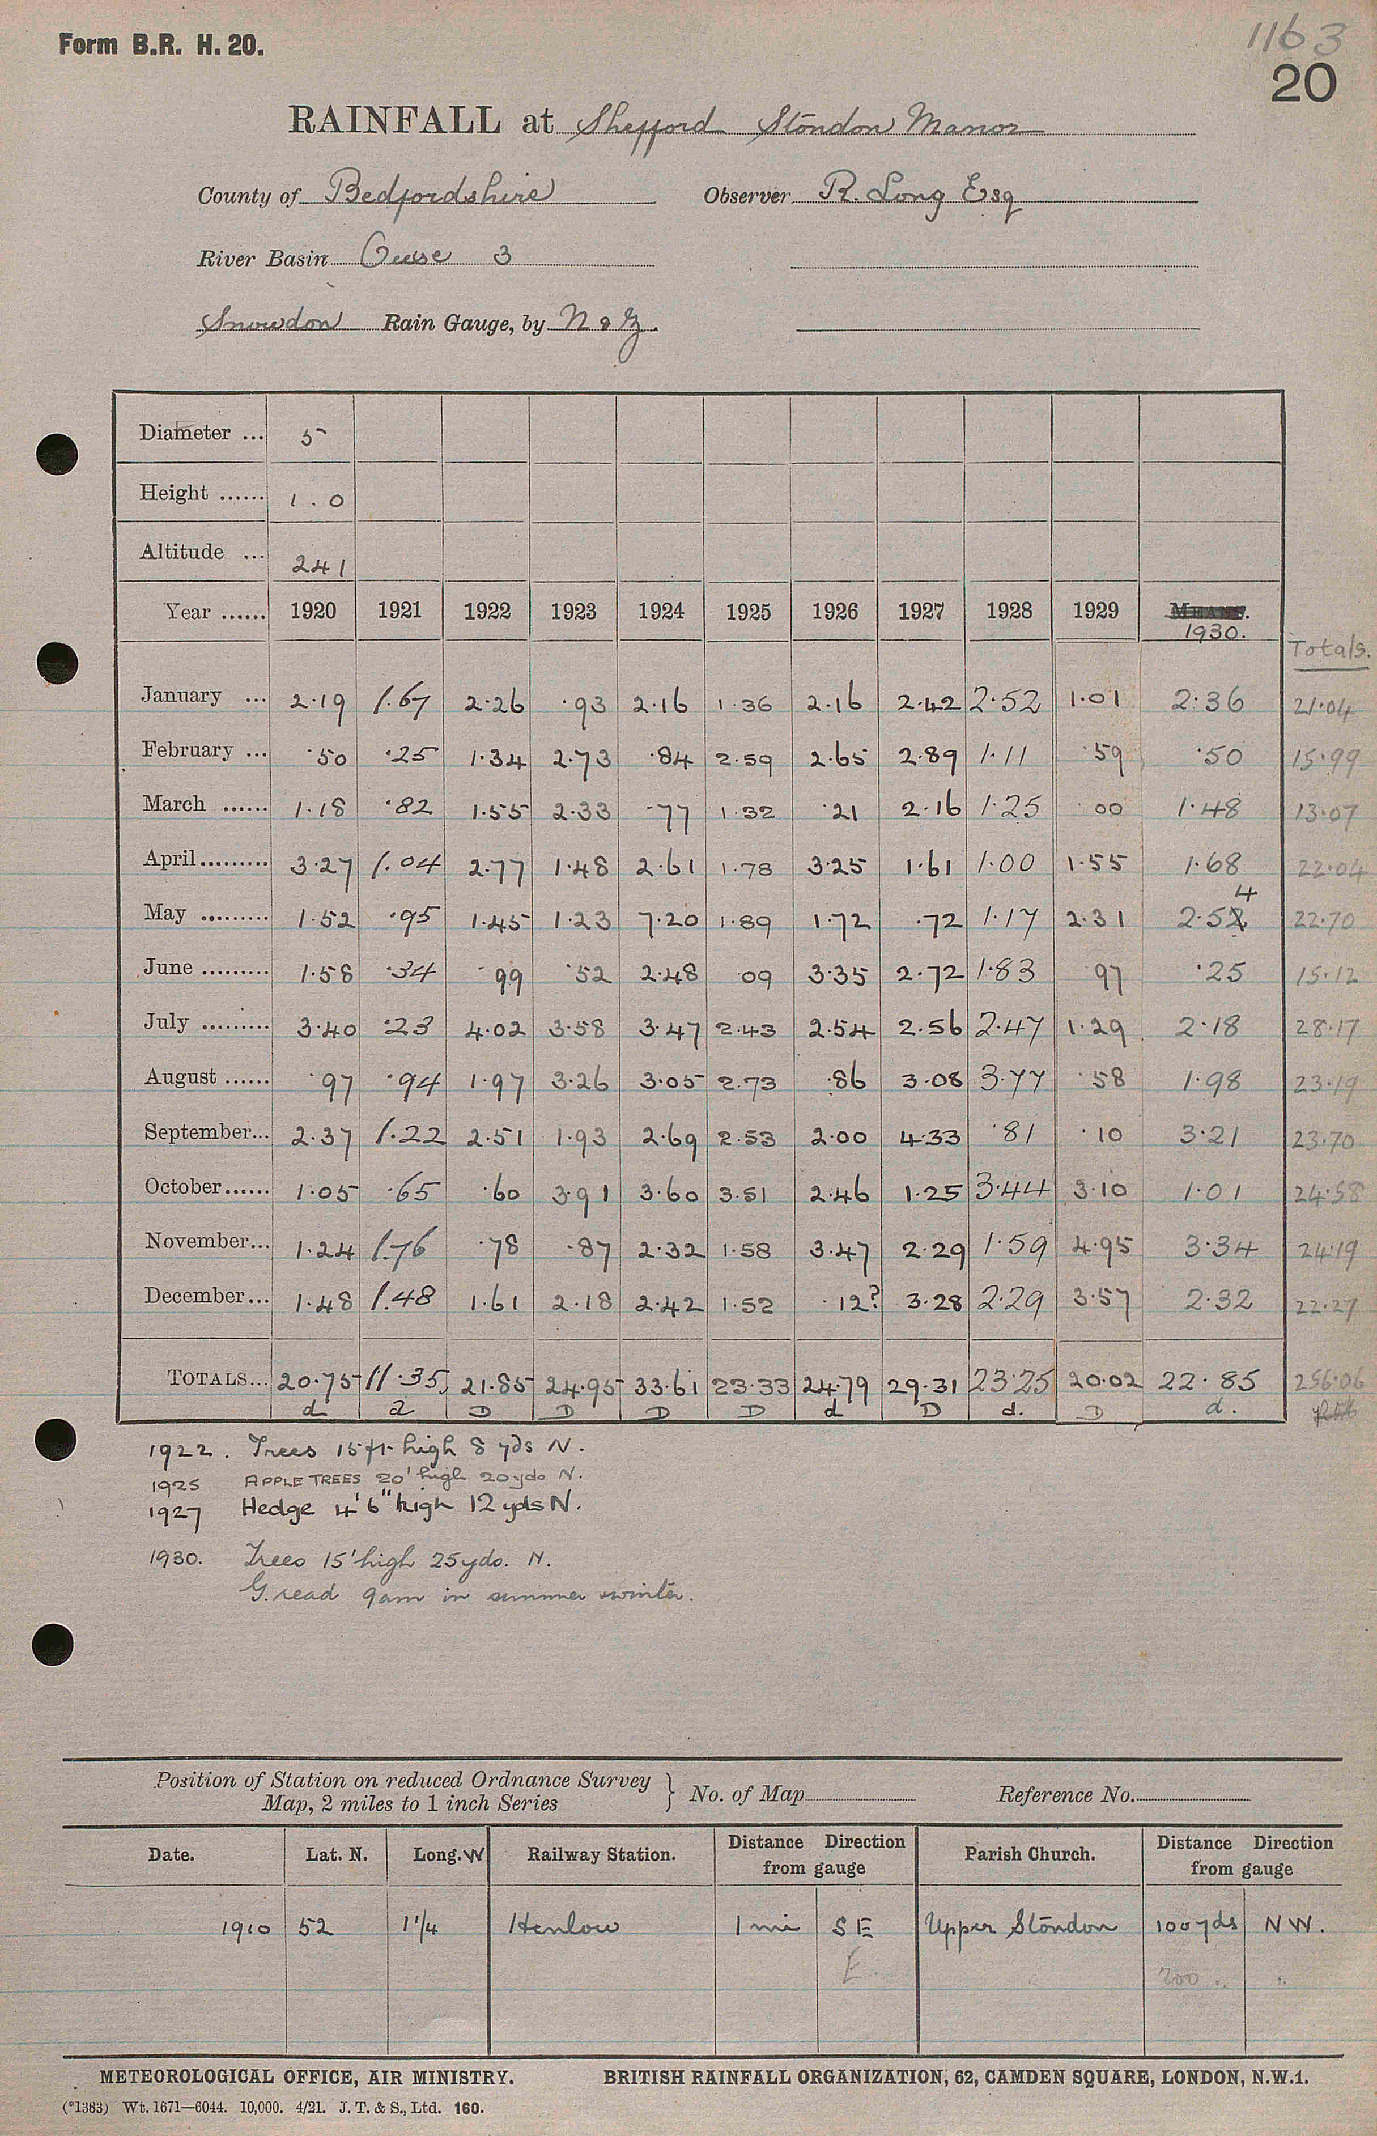 Form B.R. H. 20.
1163
20
RAINFALL at Shefford Stondon Manor
County of Bedfordshire Observer R. Long Esq
River Basin Ouse 3
Snowdon Rain Gauge, by N & Z.
Diameter ... 5
Height ...... 1.0
Altitude ... 241
Year ...... 1920 1921 1922 1923 1924 1925 1926 1927 1928 1929 MEANS. 1930. Totals.
January ... 2·19 1.67 2·26 ·93 2·16 1·36 2·16 2·42 2·52 1·01 2·36 21·04
February ... ·50 ·25 1·34 2·73 ·84 2·59 2·65 2·89 1·11 ·59 ·50 15·99
March ...... 1·18 ·82 1·55 2·33 ·77 1·32 ·21 2·16 1·25 00 1·48 13·07
April ......... 3·27 1.04 2·77 1·48 2·61 1·78 3·25 1·61 1·00 1·55 1·68 22·04
May ......... 1·52 ·95 1·45 1·23 7·20 1·89 1·72 ·72 1·17 2·31 2·54 22·70
June ......... 1·58 ·34 ·99 ·52 2·48 09 3·35 2·72 1·83 97 ·25 15·12
July ......... 3·40 ·23 4·02 3·58 3·47 2·43 2·54 2·56 2·47 1·29 2·18 28·17
August ...... ·97 ·94 1·97 3·26 3·05 2·73 ·86 3·08 3·77 ·58 1·98 23·19
September... 2·37 1.22 2·51 1·93 2·69 2·53 2·00 4·33 ·81 ·10 3·21 23·70
October ...... 1·05 ·65 ·60 3·91 3·60 3·51 2·46 1·25 3·44 3·10 1·01 24·58
November... 1·24 1.76 ·78 ·87 2·32 1·58 3·47 2·29 1·59 4·95 3·34 24·19
December... 1·48 1.48 1·61 2·18 2·42 1·52 ·12? 3·28 2·29 3·57 2·32 22·27
TOTALS... 20·75 11·35 21·85 24·95 33·61 23·33 24·79 29·31 23·25 20·02 22·85 256·06
d a D D D D d D d. D d.
1922. Trees 15 ft high 8 yds N.
1925 APPLE TREES 20' high 20 yds N.
1927 Hedge 4' 6" high 12 yds N.
1930. Trees 15' high 25 yds. N.
G. read 9am in summer & winter.
Position of Station on reduced Ordnance Survey Map, 2 miles to 1 inch Series } No. of Map Reference No.
Date. Lat. N. Long. W Railway Station. Distance Direction from gauge Parish Church. Distance Direction from gauge
1910 52 1 1/4 Henlow 1 mi SE Upper Stondon 100 yds NW.
E. 200 " "
METEOROLOGICAL OFFICE, AIR MINISTRY. BRITISH RAINFALL ORGANIZATION, 62, CAMDEN SQUARE, LONDON, N.W.1.
(*1383) Wt. 1671—6044. 10,000. 4/21. J. T. & S., Ltd. 160.